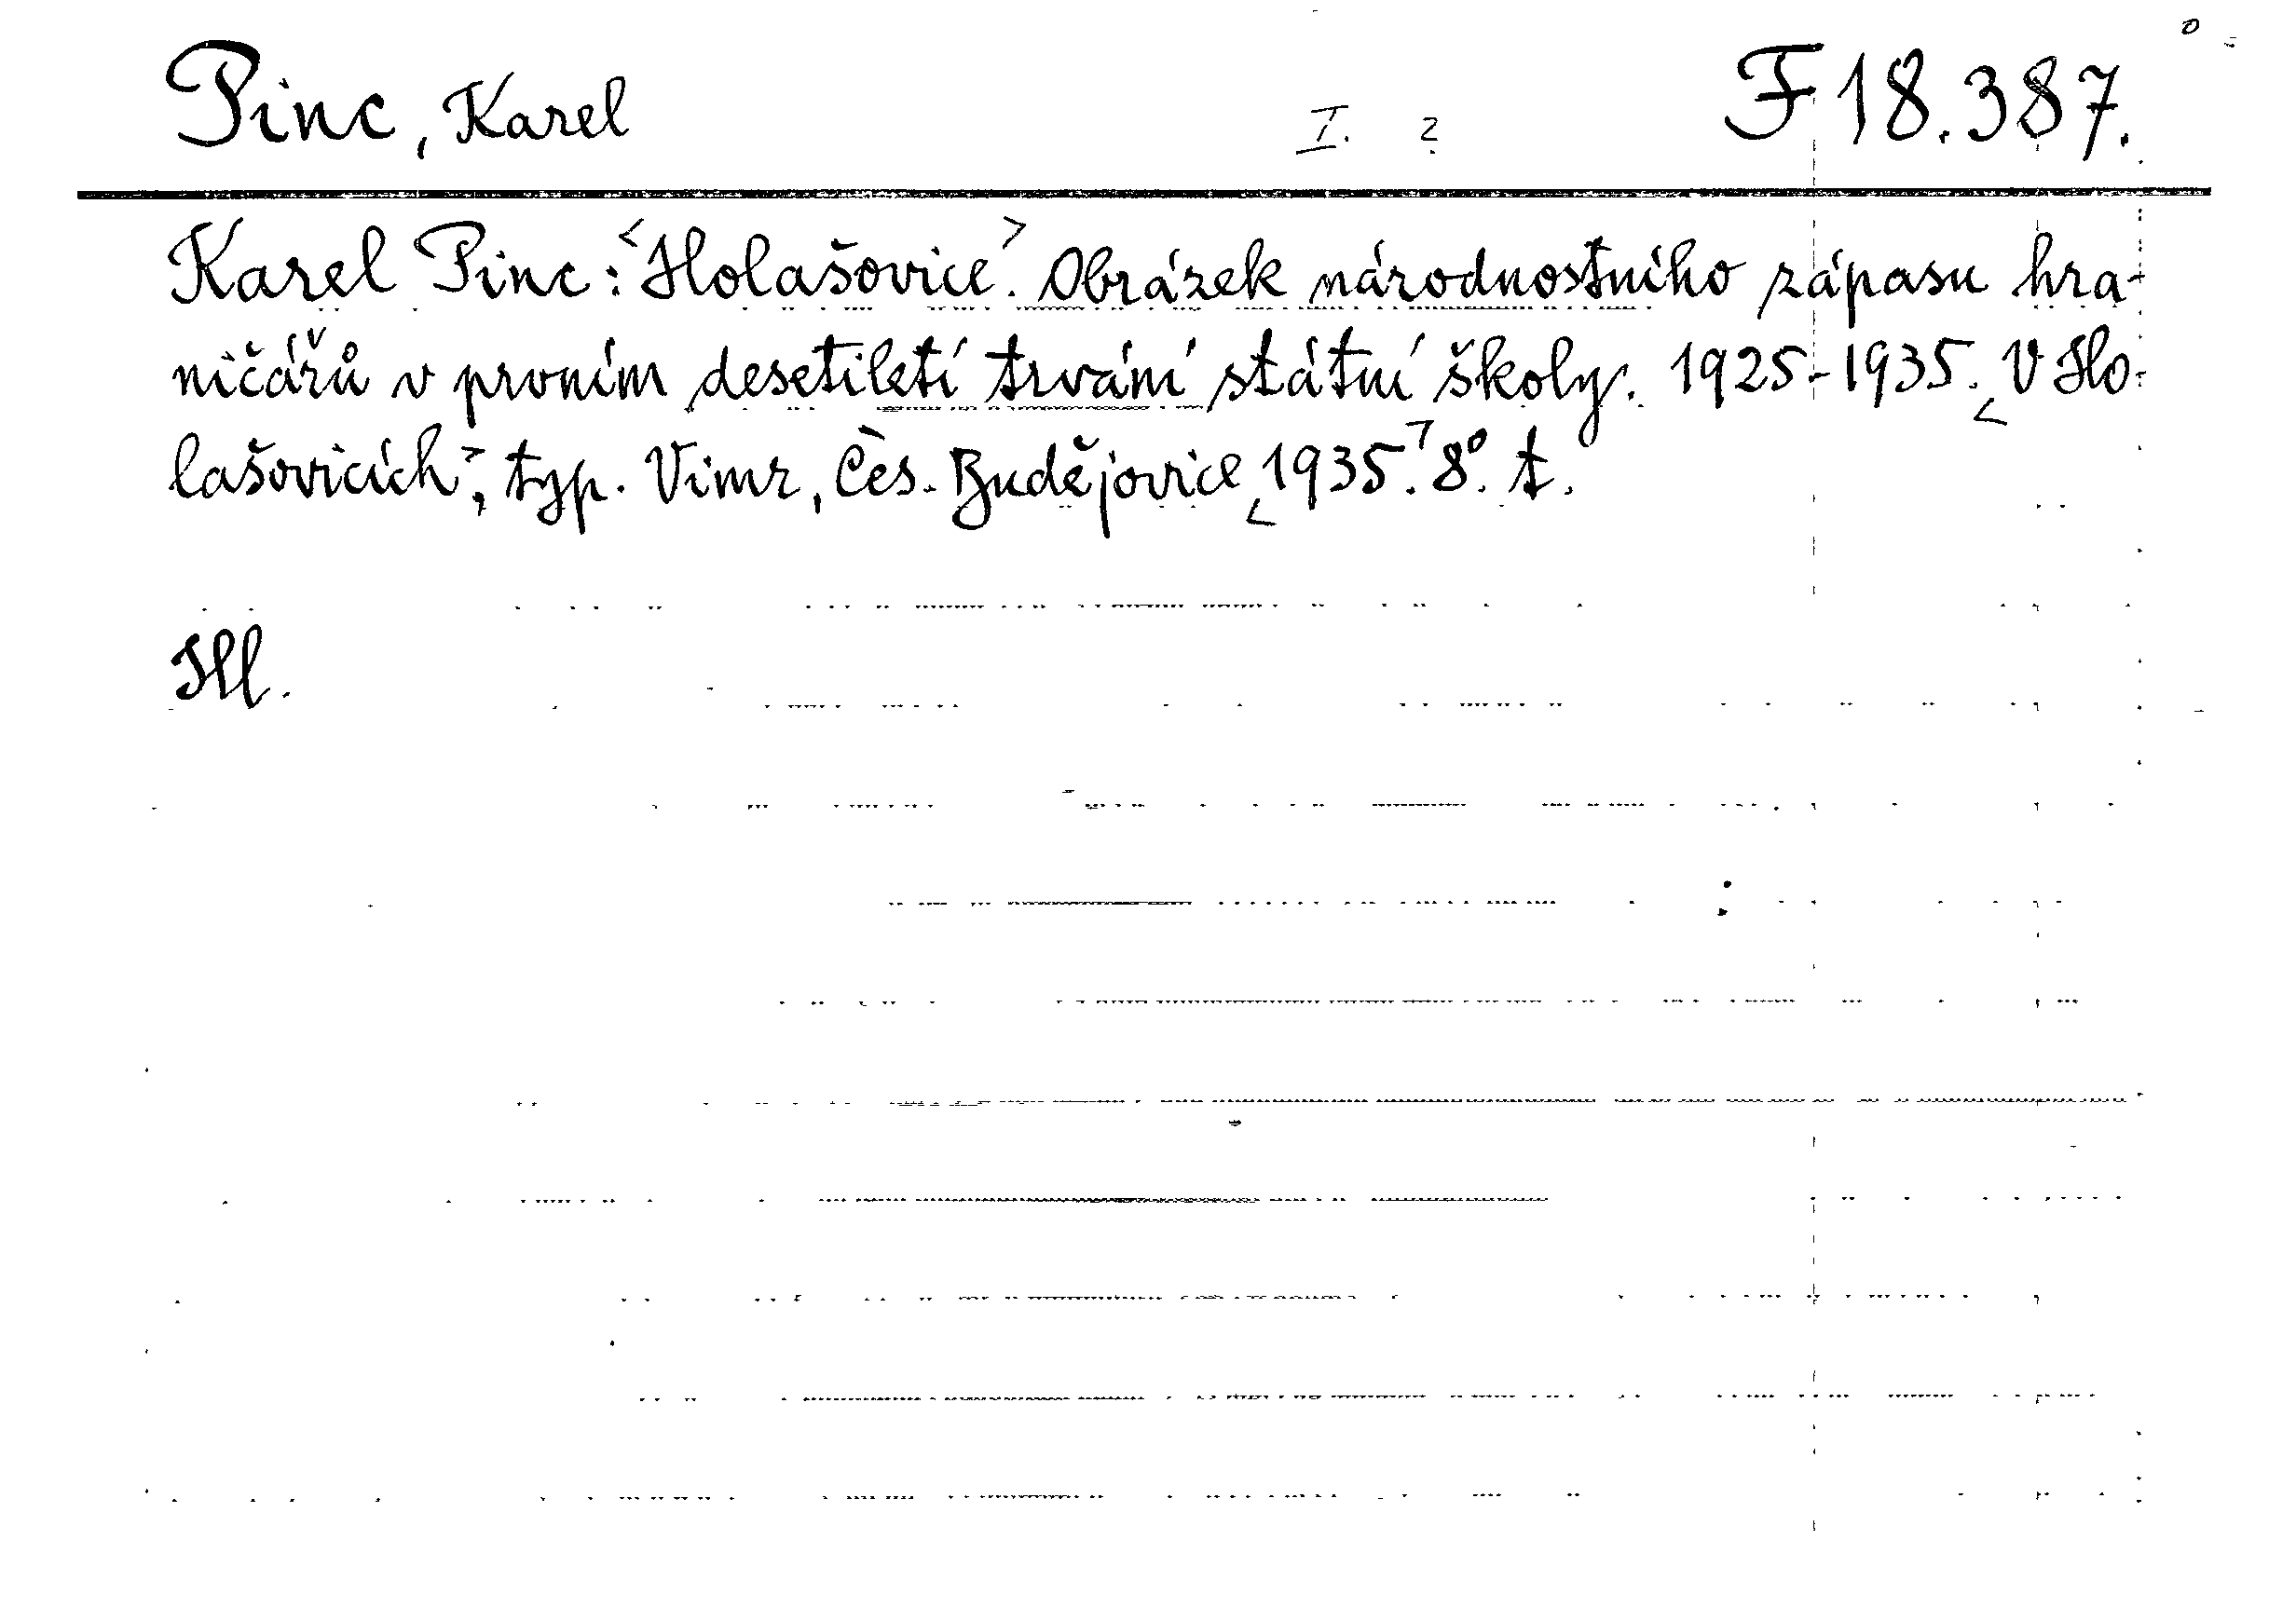 Pinc, Karel I. 2 F 18.387.
Karel Pinc: <Holašovice>. Obrázek národnostního zápasu hra-
ničářů v prvním desetiletí trvání státní školy. 1925-1935. <V Ho-
lašovicích>, typ. Vimr, Čes. Budějovice <1935>. 8°. t.
Hl.